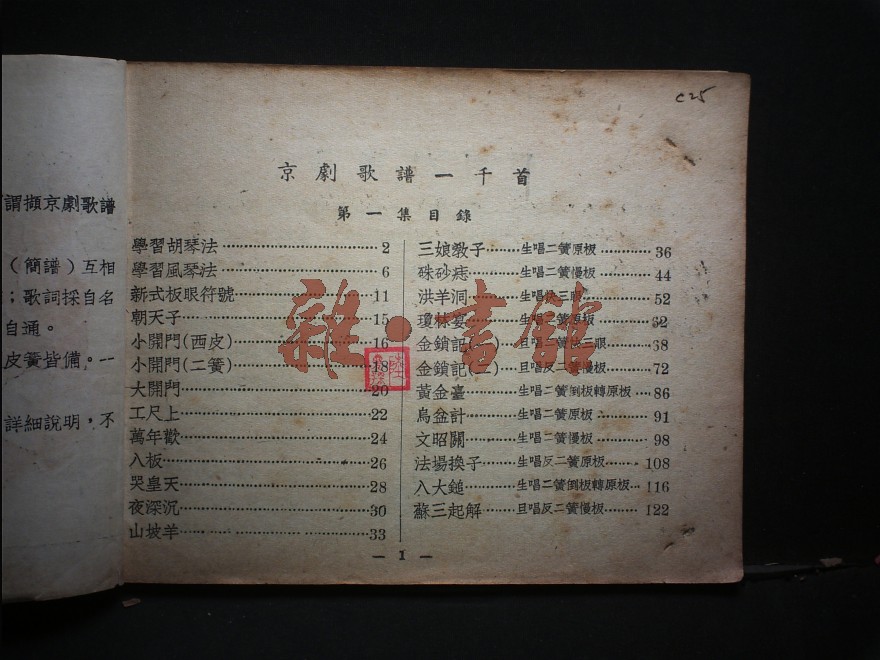 C25
謂擷京劇歌譜
（簡譜）互相
；歌詞採自名
自通。
皮簧皆備。一
詳細說明，不
京劇歌譜一千首
第一集目錄
學習胡琴法……2
學習風琴法……6
新式板眼符號……11
朝天子……15
小開門(西皮)……16
小開門(二簧)……18
大開門……20
工尺上……22
萬年歡……24
八板……26
哭皇天……28
夜深沉……30
山坡羊……33
三娘教子……生唱二簧原板……36
硃砂痣……生唱二簧慢板……44
洪羊洞……生唱快三眼……52
瓊林宴……生唱二簧原板……62
金鎖記(一)……旦唱二簧快三眼……68
金鎖記(二)……旦唱反二簧慢板……72
黃金臺……生唱二簧倒板轉原板……86
烏盆計……生唱二簧原板……91
文昭關……生唱二簧慢板……98
法場換子……生唱反二簧原板……108
八大鎚……生唱二簧倒板轉原板……116
蘇三起解……旦唱反二簧慢板……122
— 1 —
雜·書館